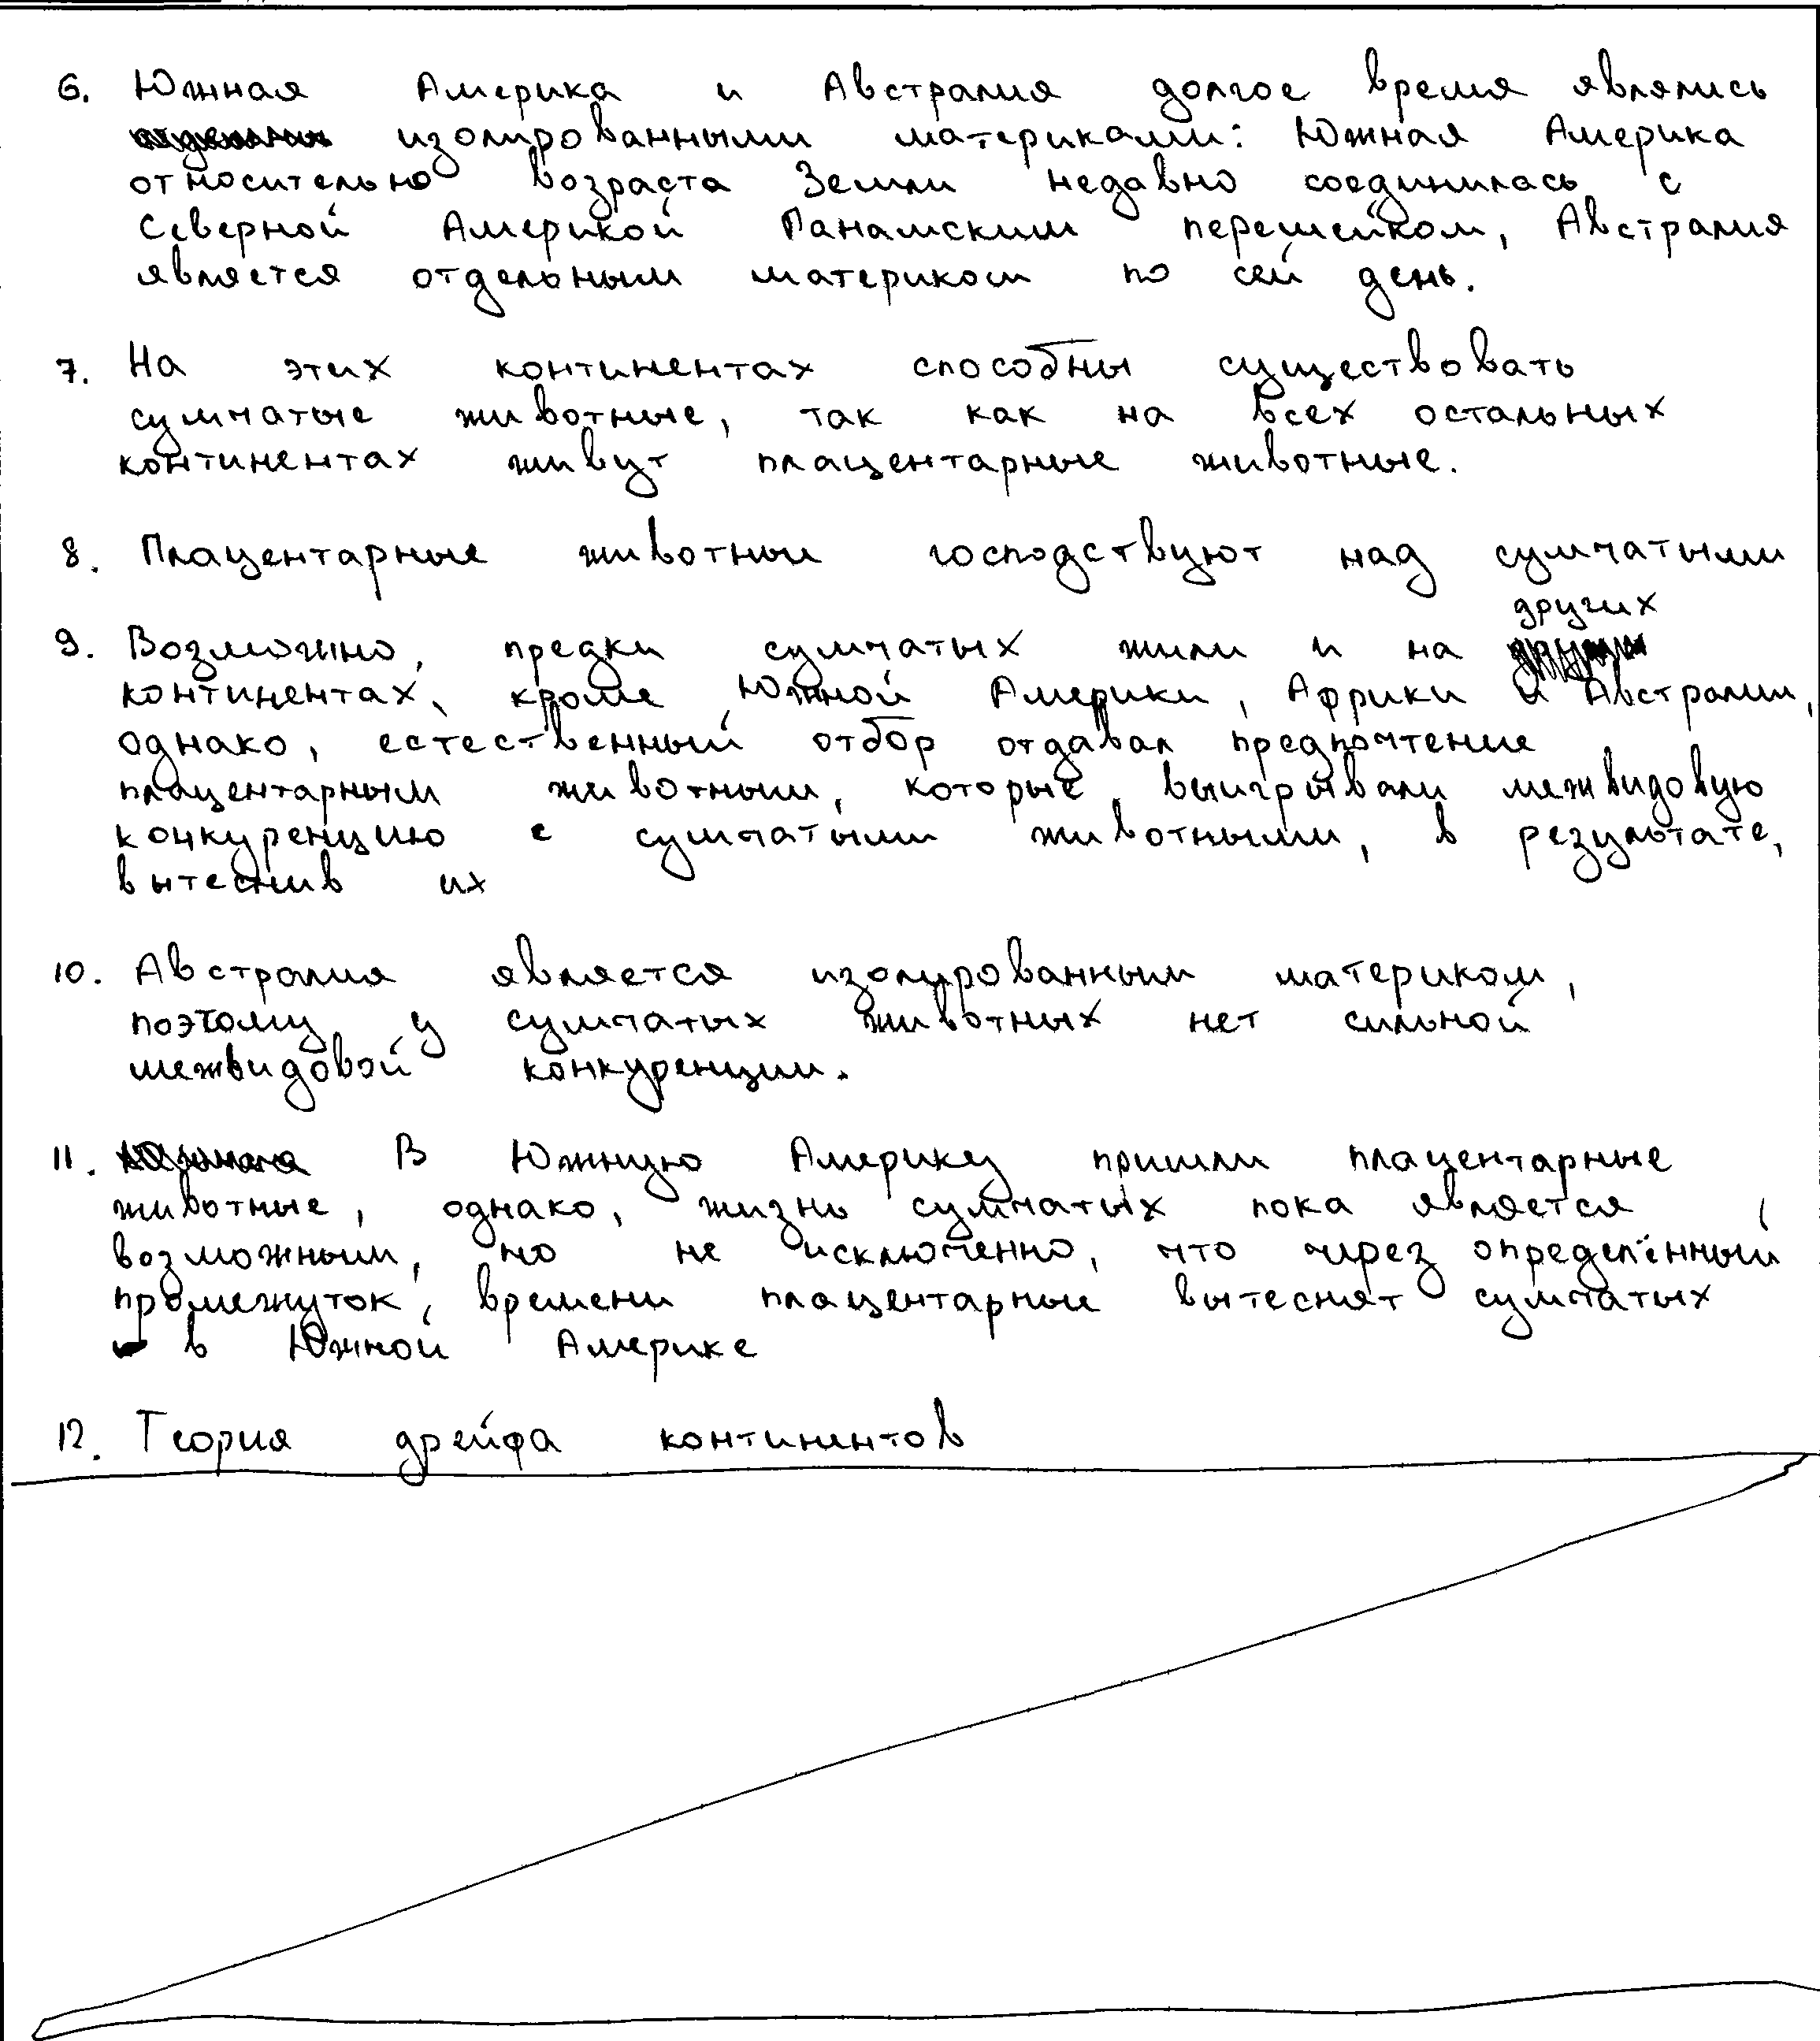 6. Южная Америка и Австралия долгое время являлись
изолированными материками: Южная Америка
относительно возраста Земли недавно соединилась с
Северной Америкой Панамским перешейком, Австралия
является отдельным материком по сей день.
7. На этих континентах способны существовать
сумчатые животные, так как на всех остальных
континентах живут плацентарные животные.
8. Плацентарные животные господствуют над сумчатыми
других
9. Возможно, предки сумчатых жили и на
континентах, кроме Южной Америки, Африки и Австралии,
однако, естественный отбор отдавал предпочтение
плацентарным животным, которые выигрывали межвидовую
конкуренцию с сумчатыми животными, в результате,
вытеснив их
10. Австралия является изолированным материком,
поэтому у сумчатых животных нет сильной
межвидовой конкуренции.
11. В Южную Америку пришли плацентарные
животные, однако, жизнь сумчатых пока является
возможным, но не исключенно, что через определённый
промежуток времени плацентарные вытеснят сумчатых
в Южной Америке
12. Теория дрейфа континентов